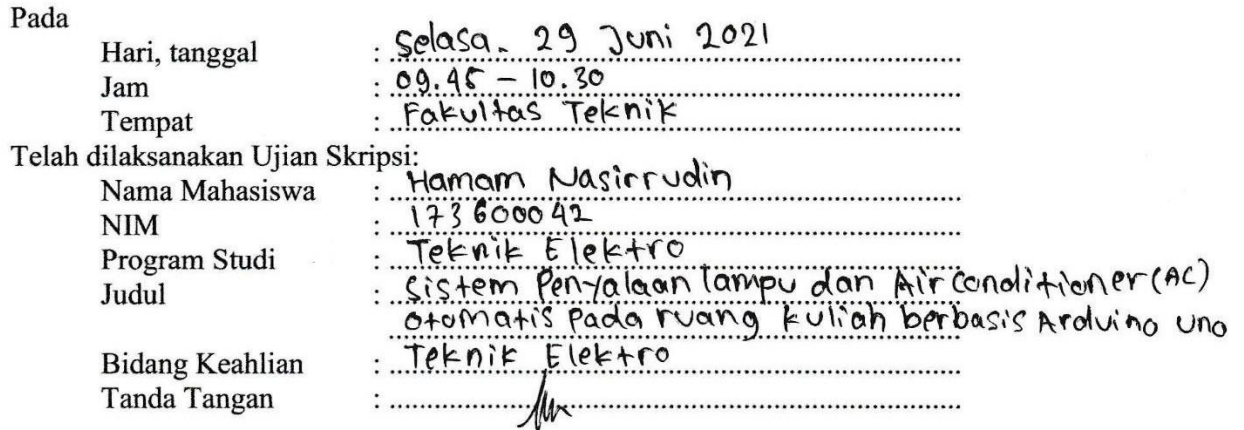 Pada
Hari, tanggal : Selasa. 29 Juni 2021
Jam : 09.45 – 10.30
Tempat : Fakultas Teknik
Telah dilaksanakan Ujian Skripsi:
Nama Mahasiswa : Hamam Nasirrudin
NIM : 173600042
Program Studi : Teknik Elektro
Judul : Sistem Penyalaan lampu dan Air Conditioner (AC)
otomatis pada ruang kuliah berbasis Arduino Uno
Bidang Keahlian : Teknik Elektro
Tanda Tangan :